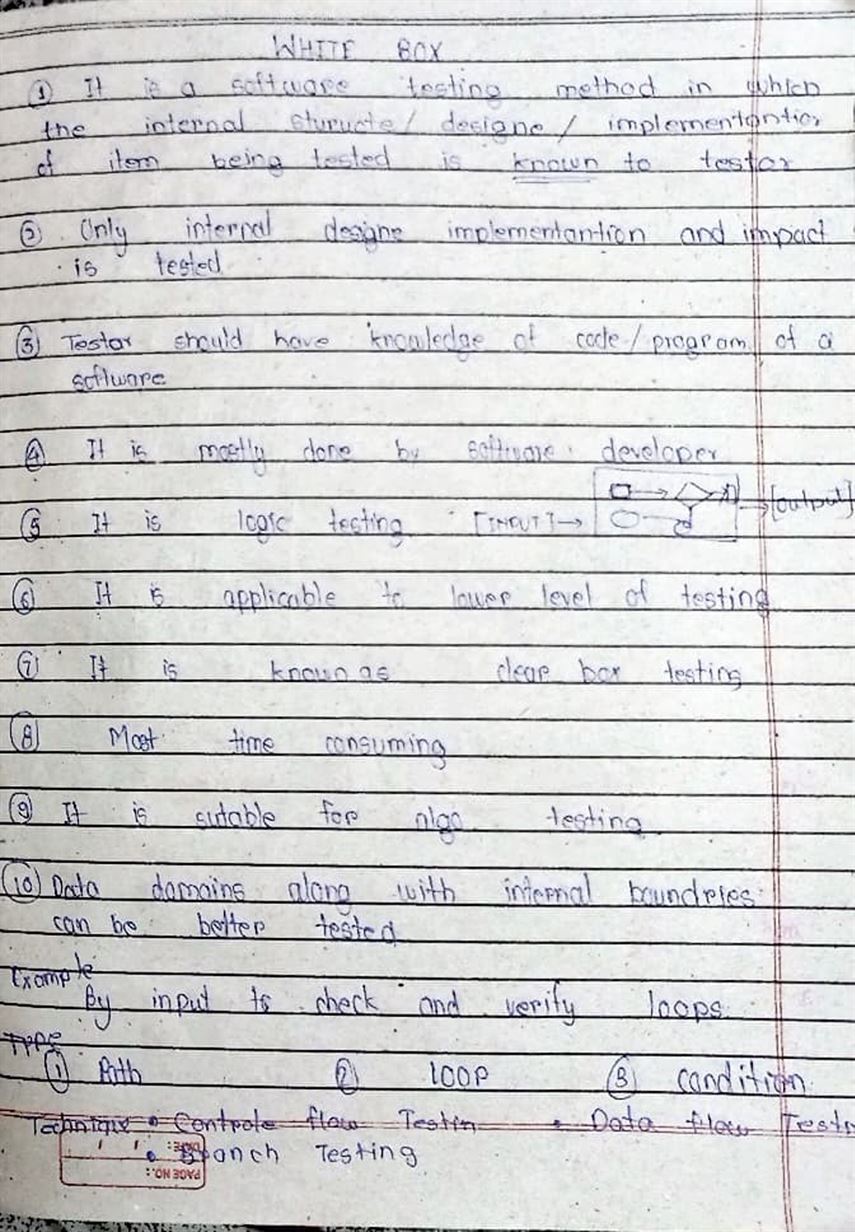 WHITE BOX
① It is a software testing method in which
the internal sturucte/ designe / implementantion
of item being tested is known to testor
② Only internal designe implementantion and impact
is tested.
③ Testor should have knowledge of code/program of a
software
④ It is mostly done by software developer
⑤ It is logic testing [INPUT]→ →[output]
⑥ It is applicable to lower level of testing
⑦ It is known as clear box testing
⑧ Most time consuming
⑨ It is sutable for algo testing
⑩ Data domains along with internal boundries
can be better tested
Example
By input to check and verify loops.
TYPE
① Path ② LOOP ③ condition
Technique • Controle flow Testin • Data flow Testn
• Branch Testing
PAGE NO.:
DATE: